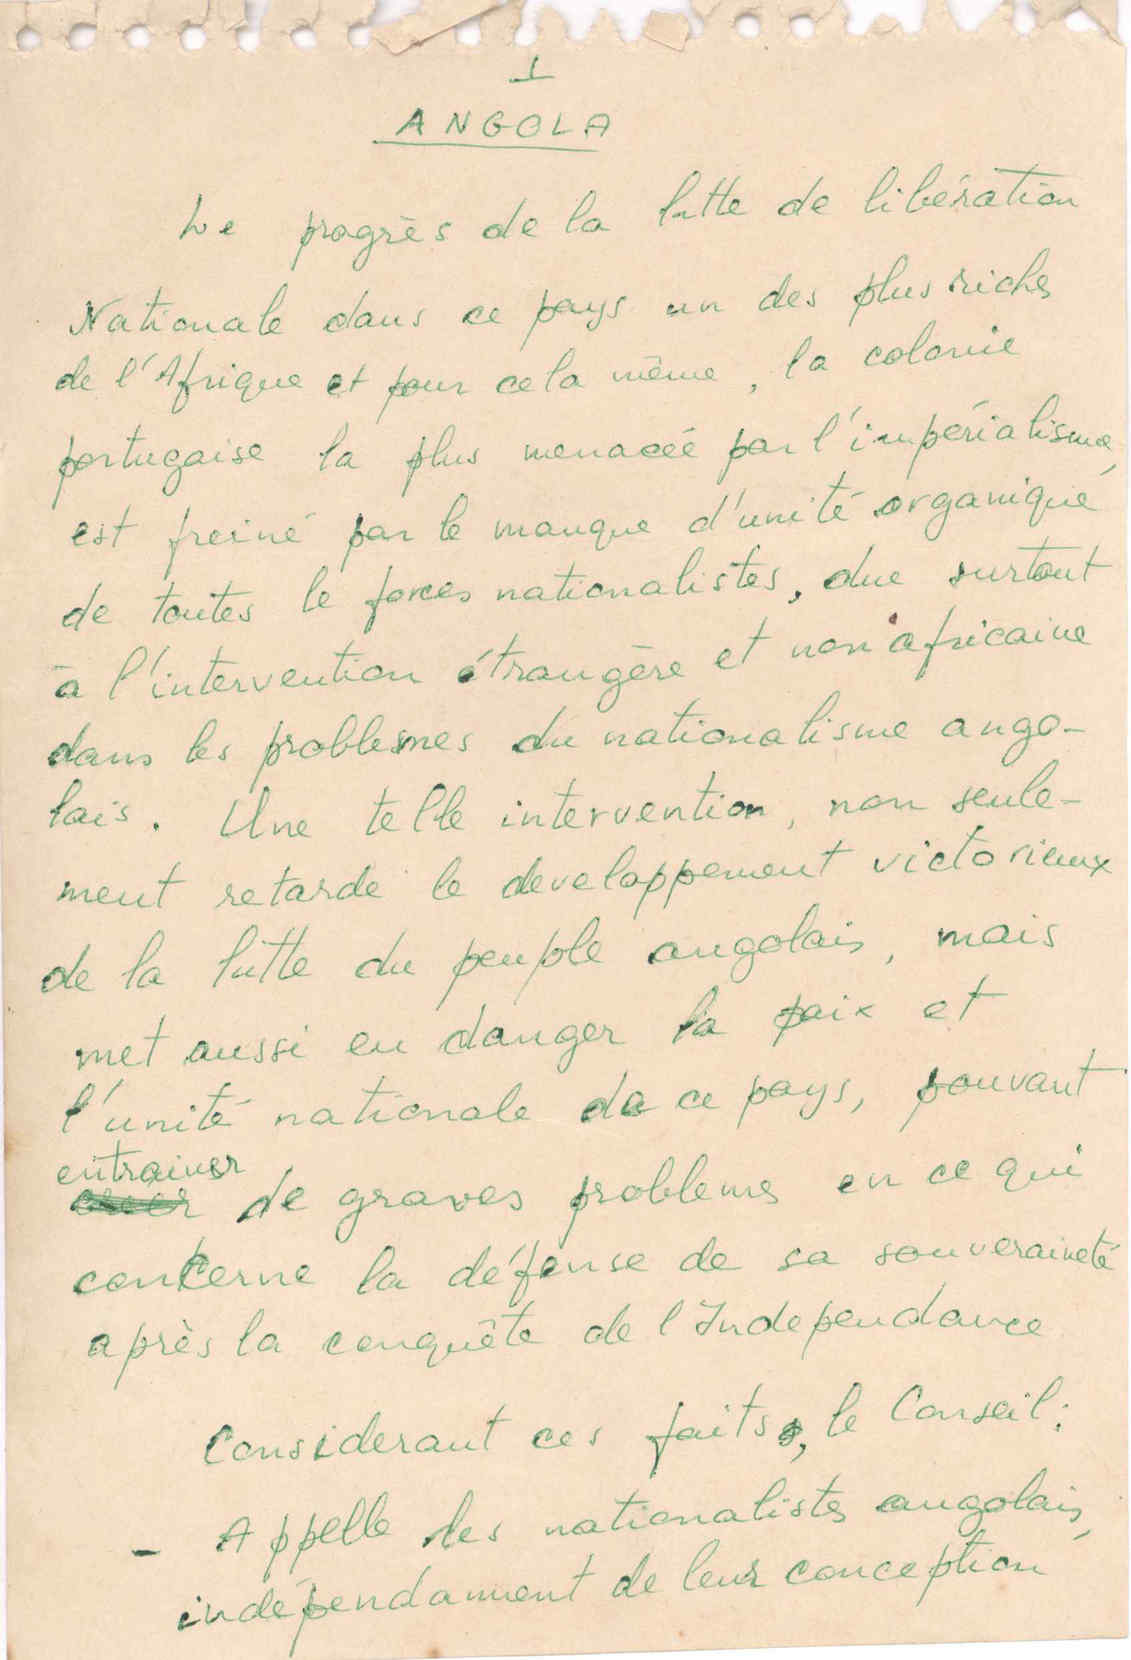 I
ANGOLA
Le progrès de la lutte de libération
Nationale dans ce pays un des plus riches
de l'Afrique et pour cela même, la colonie
portugaise la plus menacée par l'impérialisme,
est freiné par le manque d'unité organique
de toutes le forces nationalistes, due surtout
à l'intervention étrangère et non africaine
dans les problemes du nationalisme ango-
lais. Une telle intervention, non seule-
ment retarde le developpement victorieux
de la lutte du peuple angolais, mais
met aussi en danger la paix et
l'unité nationale de ce pays, pouvant
entrainer
de graves problems en ce qui
concerne la défense de sa souveraineté
après la conquête de l'Independance
Considerant ces faits, le Conseil:
- Appelle les nationalistes angolais,
indépendamment de leur conception